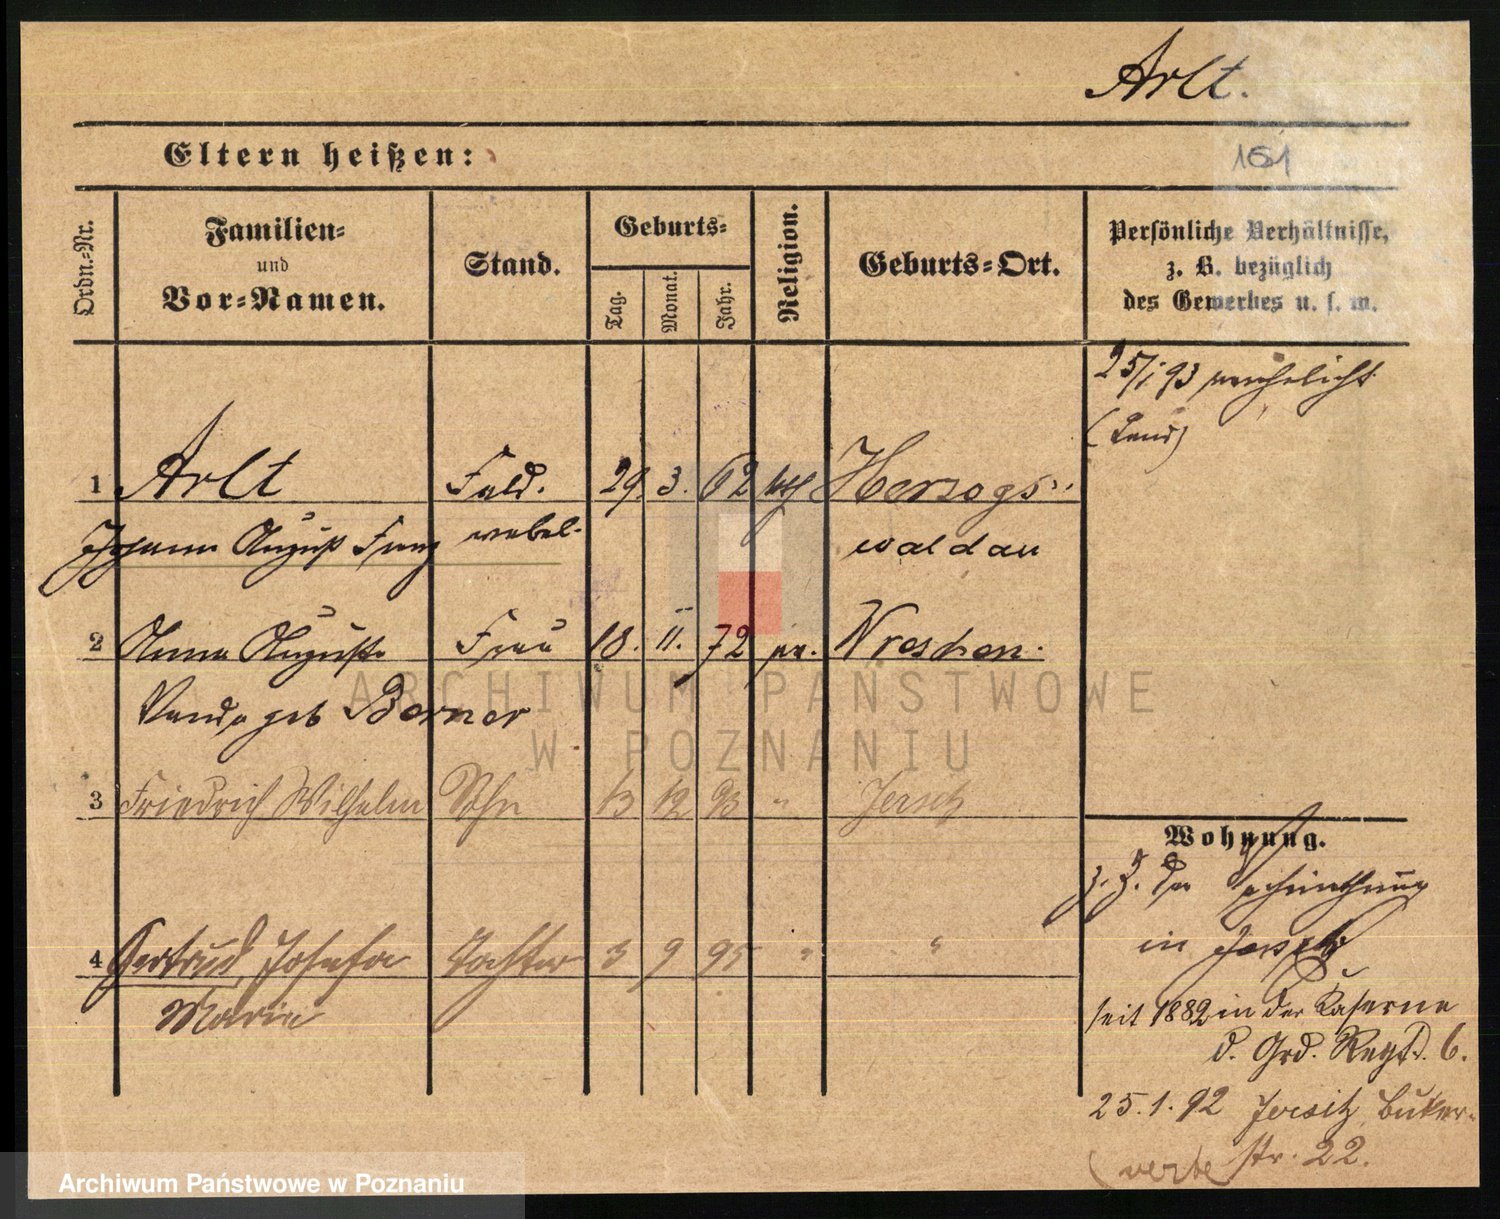 Arlt.
Eltern heißen:
161
Ordn.-Nr.
Familien-
und
Vor-Namen.
Stand.
Geburts-
Tag.
Monat.
Jahr.
Religion.
Geburts-Ort.
Persönliche Verhältnisse,
z. B. bezüglich
des Gewerbes u. s. w.
25/1 93 verehelicht
1 Arlt Feld. 29. 3. 62 Herzogs-
Johann August Franz webel. waldau
2 Anna Auguste Frau 18. 11. 72 Wreschen.
Wanda geb Berner
3 Friedrich Wilhelm Sohn 13 12 93 " Jersitz
4 Gertrud Josefa Tochter 3 9 95 " "
Maria
Wohnung.
z. Z. der
in Jersitz
seit 1882 in der Kaserne
d. Grd. Regt. 6.
25.1.92 Jersitz, Buker-
str. 22.
(verte
ARCHIWUM PAŃSTWOWE
W POZNANIU
Archiwum Państwowe w Poznaniu